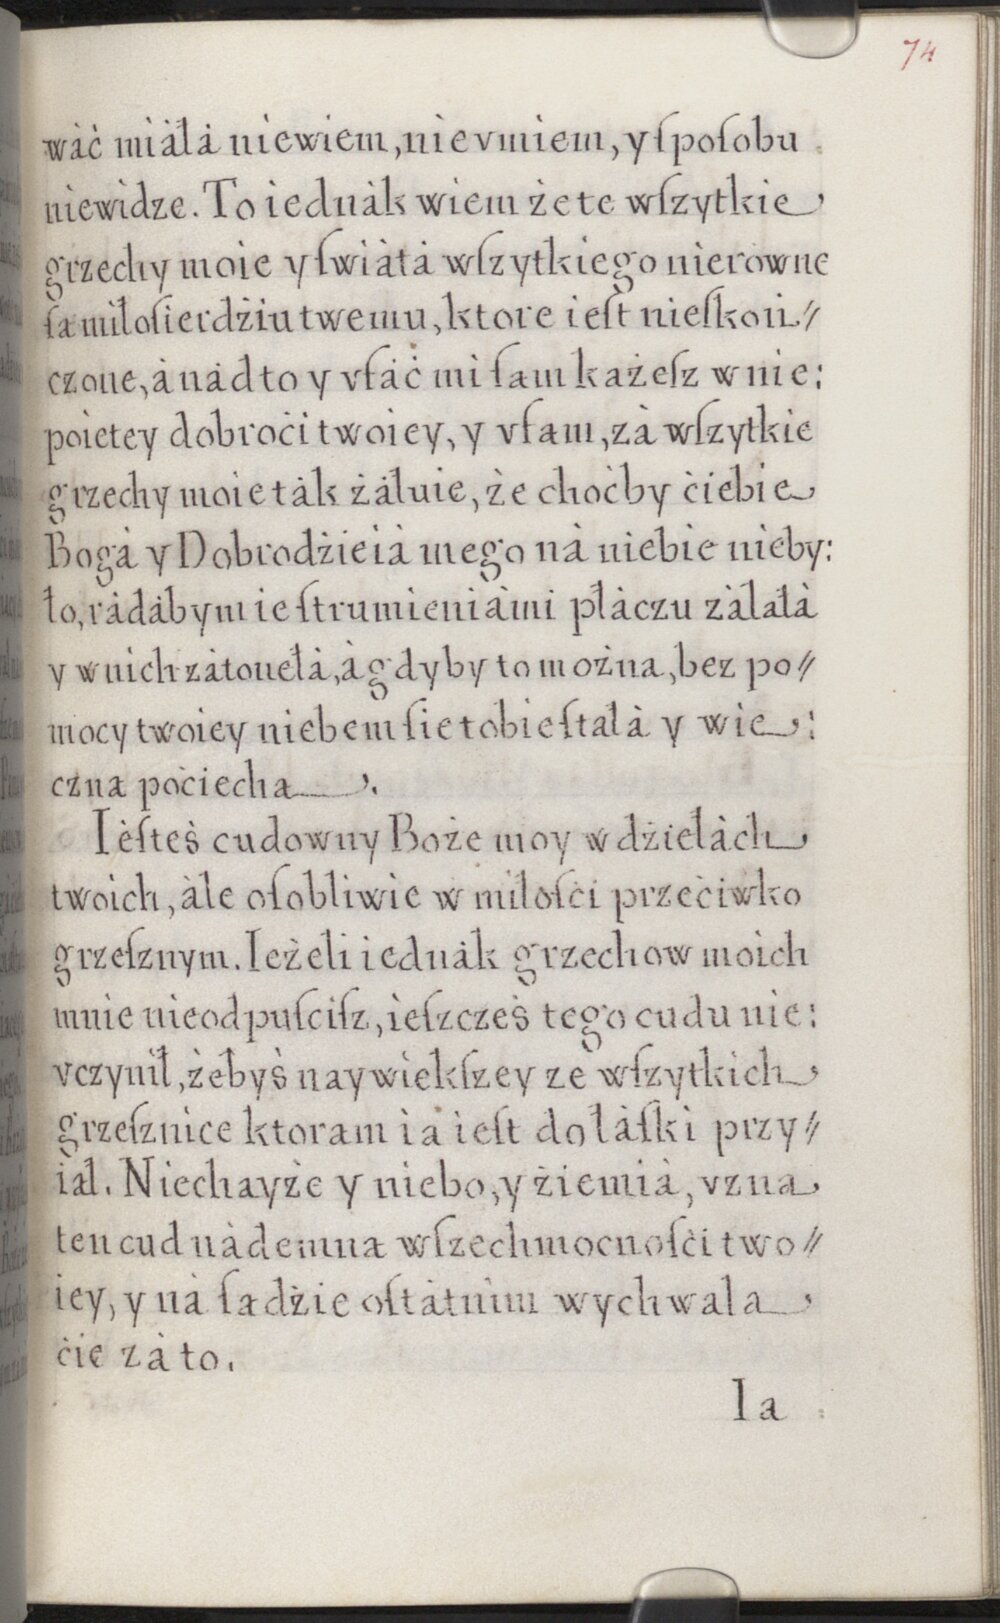 74
wáć miáłá niewiem, nie vmiem, y ſpoſobu
niewidze. To iednák wiem że te wſzytkie
grzechy moie y ſwiátá wſzytkiego nierowne
ſą miłoſierdźiu twemu, ktore ieſt nieſkoń//
czone, á nád to y vfáć mi ſam każeſz w nie:
poiętey dobroći twoiey, y vfam, zá wſzytkie
grzechy moie ták żáłuie, że choćby ćiebie
Bogá y Dobrodźieiá mego ná niebie nieby:
ło, rádábym ie ſtrumieniámi płáczu záláłá
y w nich zátonęłá, á gdyby to można, bez po//
mocy twoiey niebem ſie tobie ſtáłá y wie:
czną poćiechą.
Ieſteś cudowny Boże moy w dźiełách
twoich, ále oſobliwie w miłoſći przećiwko
grzeſznym. Ieżeli iednák grzechow moich
mnie nieodpuſciſz, ieſzcześ tego cudu nie:
vczynił, żebyś naywiękſzey ze wſzytkich
grzeſznice ktoram ia ieſt do łáſki przy//
iął. Niechayże y niebo, y źiemiá, vzna
ten cud nádemną wſzechmocnoſći two//
iey, y ná ſądźie oſtátnim wychwala
ćie zá to.
Ia